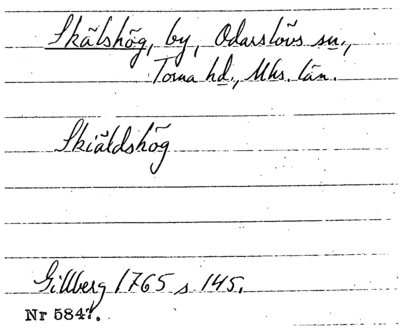 Skälshög, by, Odarslövs sn.,
Torna hd., Mhs. län.
Skiäldshög
Gillberg 1765 s. 145.
Nr 5847.